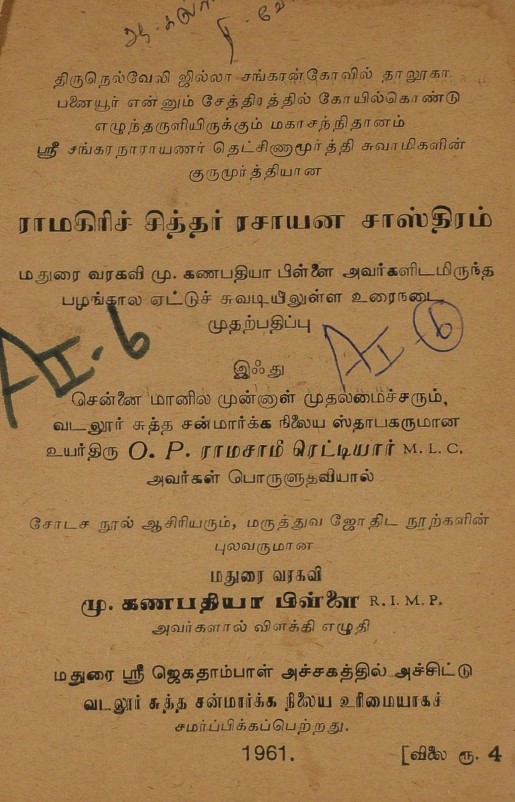 திருநெல்வேலி ஜில்லா சங்கரன்கோவில் தாலூகா
பனையூர் என்னும் சேத்திரத்தில் கோயில்கொண்டு
எழுந்தருளியிருக்கும் மகாசந்நிதானம்
ஸ்ரீ சங்கரநாராயணர் தெட்சிணாமூர்த்தி சுவாமிகளின்
குருமூர்த்தியான
ராமகிரிச் சித்தர் ரசாயன சாஸ்திரம்
மதுரை வரகவி மு. கணபதியா பிள்ளை அவர்களிடமிருந்த
பழங்கால ஏட்டுச் சுவடியிலுள்ள உரைநடை
முதற்பதிப்பு
AII-6
AI-6
இஃது
சென்னை மானில முன்னாள் முதலமைச்சரும்,
வடலூர் சுத்த சன்மார்க்க நிலைய ஸ்தாபகருமான
உயர்திரு O. P. ராமசாமி ரெட்டியார் M. L. C.
அவர்கள் பொருளுதவியால்
சோடச நூல் ஆசிரியரும், மருத்துவ ஜோதிட நூற்களின்
புலவருமான
மதுரை வரகவி
மு. கணபதியா பிள்ளை R. I. M. P.
அவர்களால் விளக்கி எழுதி
மதுரை ஸ்ரீ ஜெகதாம்பாள் அச்சகத்தில் அச்சிட்டு
வடலூர் சுத்த சன்மார்க்க நிலைய உரிமையாகச்
சமர்ப்பிக்கப்பெற்றது.
1961. [விலை ரூ. 4